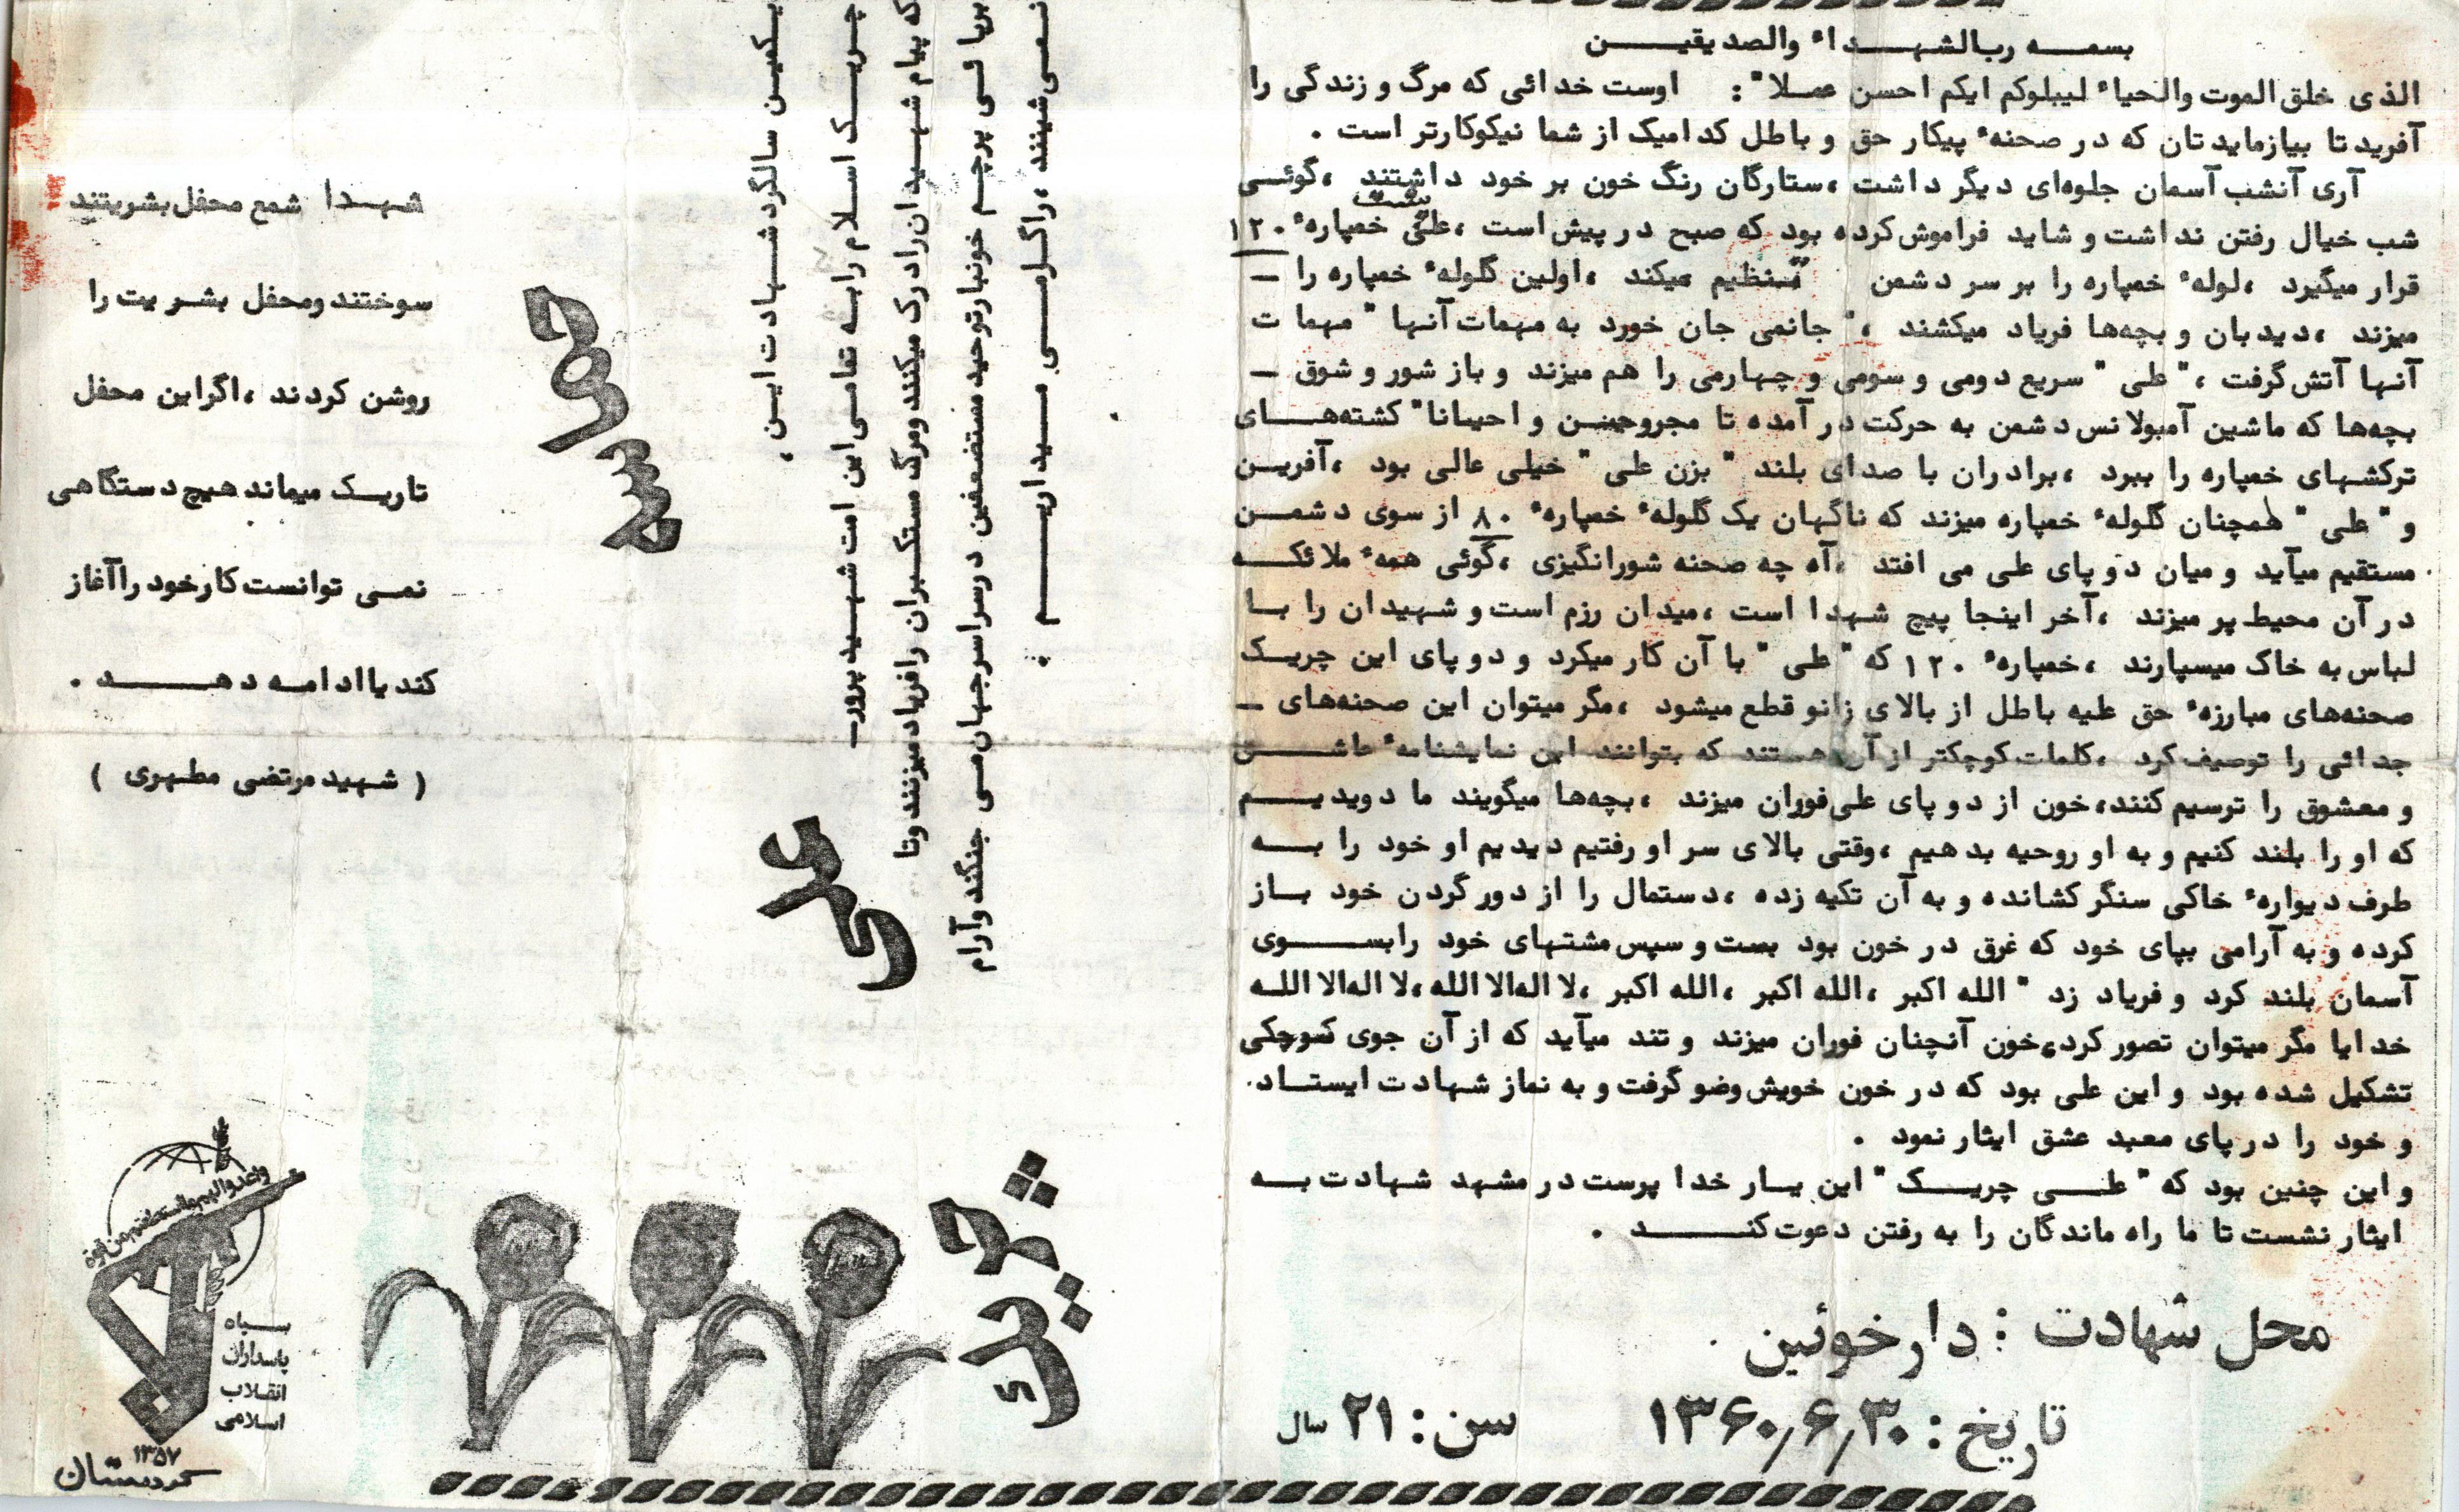 بسمه رب‌الشهداء والصدیقین
الذی خلق الموت والحیاء لیبلوکم ایکم احسن عملا" : اوست خدائی که مرگ و زندگی را
آفرید تا بیازماید تان که در صحنهٔ پیکار حق و باطل کدامیک از شما نیکوکارتر است .
آری آنشب آسمان جلوه‌ای دیگر داشت ، ستارگان رنگ خون بر خود داشتند ، گوئی
شب خیال رفتن نداشت و شاید فراموش کرده بود که صبح در پیش است ، علی پشت خمپارهٔ ۱۲۰
قرار میگیرد ، لولهٔ خمپاره را بر سر دشمن تنظیم میکند ، اولین گلولهٔ خمپاره را –
میزند ، دیدبان و بچه‌ها فریاد میکشند ، " جانمی جان خورد به مهمات آنها " مهمات
آنها آتش گرفت ، " علی " سریع دومی و سومی و چهارمی را هم میزند و باز شور و شوق –
بچه‌ها که ماشین آمبولانس دشمن به حرکت در آمده تا مجروحین و احیانا" کشته‌های
ترکشهای خمپاره را ببرد ، برادران با صدای بلند " بزن علی " خیلی عالی بود ، آفرین
و " علی " همچنان گلولهٔ خمپاره میزند که ناگهان یک گلولهٔ خمپارهٔ ۸۰ از سوی دشمن
مستقیم میآید و میان دو پای علی می افتد ، آه چه صحنه شورانگیزی ، گوئی همهٔ ملائکه
در آن محیط پر میزند ، آخر اینجا پیچ شهدا است ، میدان رزم است و شهیدان را با
لباس به خاک میسپارند ، خمپارهٔ ۱۲۰ که " علی " با آن کار میکرد و دو پای این چریک
صحنه‌های مبارزهٔ حق علیه باطل از بالای زانو قطع میشود ، مگر میتوان این صحنه‌های –
جدائی را توصیف کرد ، کلمات کوچکتر از آن هستند که بتوانند این نمایشنامهٔ عاشق
و معشوق را ترسیم کنند ، خون از دو پای علی فوران میزند ، بچه‌ها میگویند ما دویدیم
که او را بلند کنیم و به او روحیه بدهیم ، وقتی بالای سر او رفتیم دیدیم او خود را به
طرف دیوارهٔ خاکی سنگر کشانده و به آن تکیه زده ، دستمال را از دور گردن خود باز
کرده و به آرامی بپای خود که غرق در خون بود بست و سپس مشتهای خود را بسوی
آسمان بلند کرد و فریاد زد " الله اکبر ، الله اکبر ، الله اکبر ، لا اله‌الا الله ، لا اله‌الا الله
خدایا مگر میتوان تصور کرد ، خون آنچنان فوران میزند و تند میآید که از آن جوی کوچکی
تشکیل شده بود و این علی بود که در خون خویش وضو گرفت و به نماز شهادت ایستاد .
و خود را در پای معبد عشق ایثار نمود .
و این چنین بود که " علی چریک " این یار خدا پرست در مشهد شهادت به
ایثار نشست تا ما راه ماندگان را به رفتن دعوت کند .
محل شهادت : دارخوئین .
تاریخ : ۱۳۶۰/۶/۳۰ سن : ۲۱ سال
یکمین سالگرد شهادت این ،
چریک اسلام را به تمامی این امت شهید پرور –
که پیام شهیدان را درک میکنند و مرگ مستکبران را فریاد میزنند و تا
برپا ئی پرچم خونبار توحید مستضعفین در سراسر جهان می جنگند و آرام
نمی‌شینند ، را گرامی میداریم :
حماسه
علی
چریک
شهدا شمع محفل بشریتند
سوختند و محفل بشریت را
روشن کردند ، اگر این محفل
تاریک میماند هیچ دستگاهی
نمی توانست کار خود را آغاز
کند یا ادامه دهد .
( شهید مرتضی مطهری )
واعدوا لهم ما استطعتم من قوة
سپاه
پاسداران
انقلاب
اسلامی
۱۳۵۷
کردستان